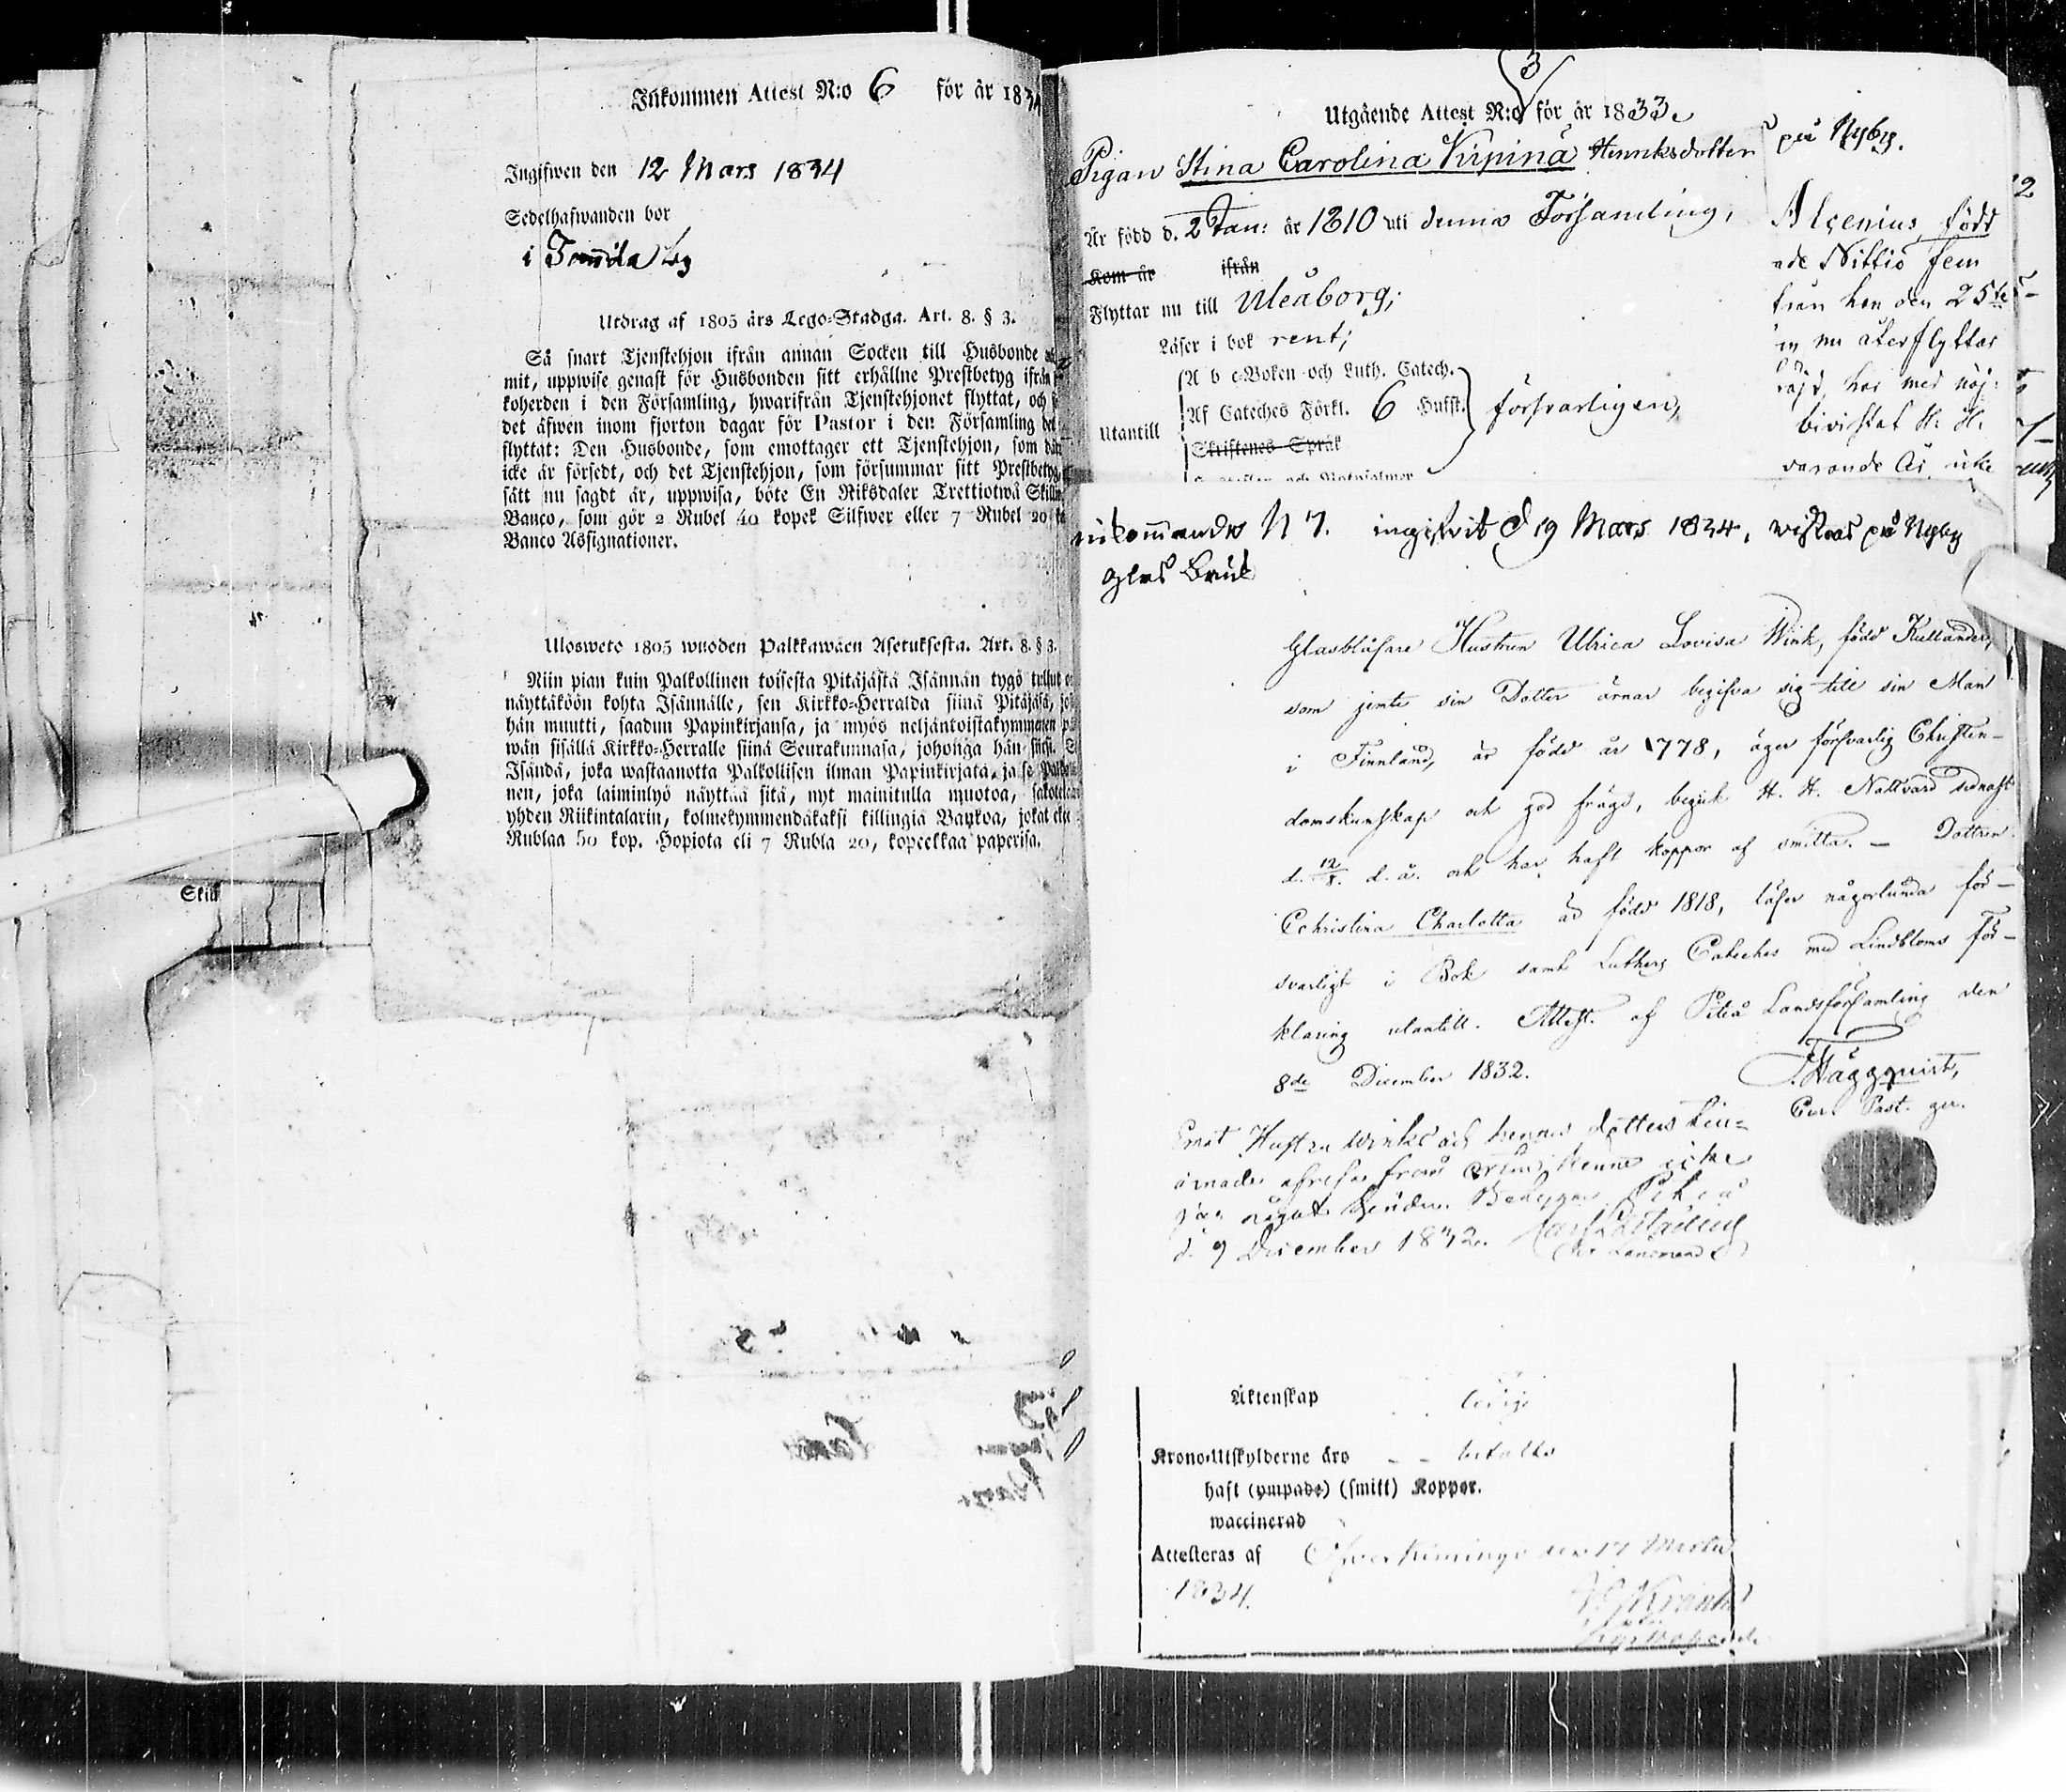 Inkommen Attest N:o 6 för år 1834
Ingifwen den 12 Mars 1834
Sedelhafwanden bor
i
Utdrag af 1805 års Lego-Stadga. Art. 8. § 3.
Så snart Tjenstehjon ifrån annan Socken till Husbonde
mit, uppwise genast för Husbonden sitt erhållne Prestbetyg ifrån
koherden i den Församling, hwarifrån Tjenstehjonet flyttat, och
det äfwen inom fjorton dagar för Pastor i den Församling
flyttat: Den Husbonde, som emottager ett Tjenstehjon, som
icke är försedt, och det Tjenstehjon, som försummar sitt Prestbetyg
sätt nu sagdt är, uppwisa, böte En Riksdaler Trettiotwå
Banco, som gör 2 Rubel 40 kopek Silfwer eller 7 Rubel 20
Banco Assignationer.
Ulosweto 1805 wuoden Palkkawäen Asetuksesta. Art. 8. § 3.
Niin pian kuin Palkollinen toisesta Pitäjästä Isännän tygö tullut
näyttäköön kohta Isännälle, sen Kirkko-Herralda siinä Pitäjäsä,
hän muutti, saadun Papinkirjansa, ja myös neljäntoistakymmenen
wän sisällä Kirkko-Herralle siinä Seurakunnasa, johonga hän siirsi.
Isändä, joka wastaanotta Palkollisen ilman Papinkirjata, ja se
nen, joka laiminlyö näyttää sitä, nyt mainitulla muotoa,
yhden Riikintalarin, kolmekymmendäkaksi killingiä Bankoa, jokat
Rublaa 50 kop. Hopiota eli 7 Rubla 20, kopeekkaa paperisa.
Skill
3
Utgående Attest N:o för år 1833.
Pigan Stina Carolina Virpinä Henriksdotter
Är född d. 2 Jan: år 1810 uti denna Församling,
Kom år ifrån
Flyttar nu till Uleåborg;
Läser i bok rent;
A b c-Boken och Luth. Catech.
Af Cateches Förkl. 6 Hufst. försvarligen,
Utantill
Skriftenes Språk
på Nyby.
Alcenius, född
ade Nittio fem
från hen den 25te
in nu återflyttar
röjd, har med nöj:
bivistat H. H.
varande År icke
inkommande N 7. ingifvit d 19 Mars 1834, vistas på Nyby
glas bruk
Glasblåsare Hustrun Ulrica Lovisa Wink, född Kullander,
som jemte sin Dotter ärnar begifva sig till sin Man
i Finnland, är född år 1778, äger försvarlig Christen-
domskunskap och god frägd, begick H. H. Nattvard sednast
d. 12/8. d. å. och har haft koppor af smitta. — Dottren
Cchristina Charlotta är född 1818, läser någorlunda för-
svarligt i Bok samt Luthers Cateches med Lindbloms för-
klaring utantill. Attest. af Piteå Landsförsamling den
8de December 1832.
J. Häggquist,
Cur. Past. ger.
Emot Hustru Winks och hennes dotters
ärnade afresa från orten känner icke
jag något hinder. Betygar Piteå
d. 9 December 1832.
Äktenskap ledig
Krono-Utskylderne äro - - betalte
haft (ympade) (smitt) Koppor.
waccinerad
Attesteras af Öfver Kiminge den 17 Martii
1834.